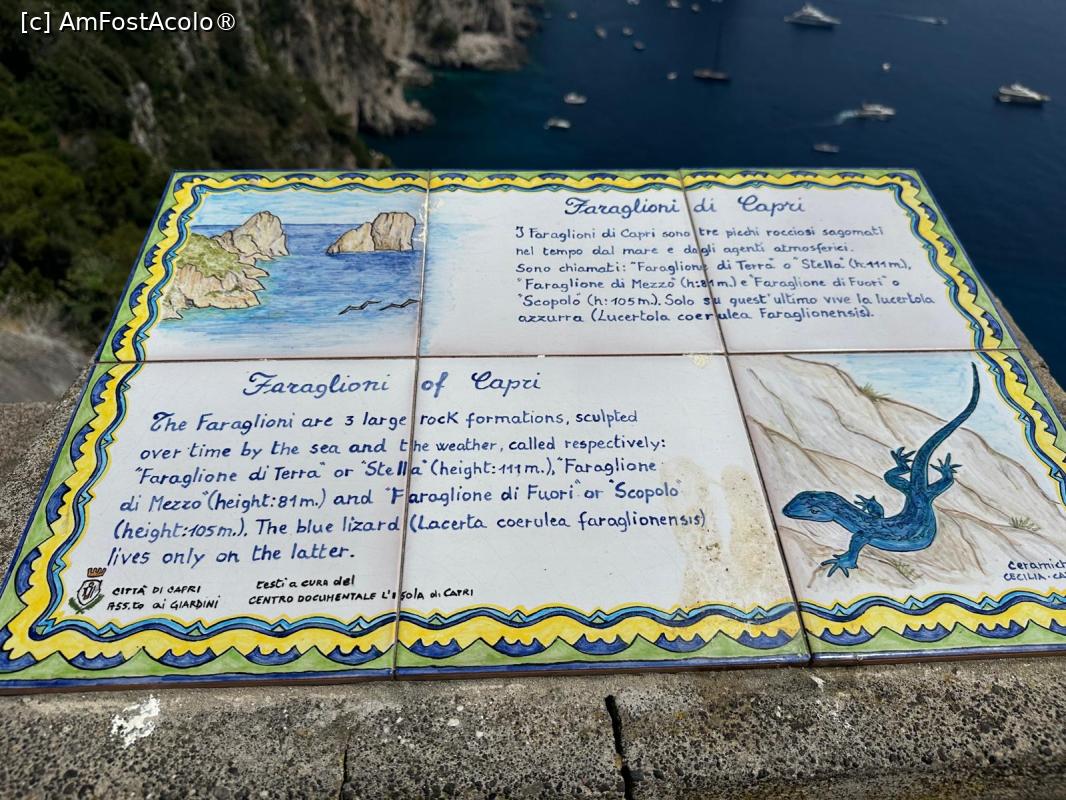 [c] AmFostAcolo®
Faraglioni di Capri
I Faraglioni di Capri sono tre picchi rocciosi sagomati
nel tempo dal mare e dagli agenti atmosferici.
Sono chiamati: "Faraglione di Terra" o "Stella" (h:111m.),
"Faraglione di Mezzo" (h:81m.) e "Faraglione di Fuori" o
"Scopolo" (h:105m.). Solo su quest'ultimo vive la lucertola
azzurra (Lucertola coerulea Faraglionensis).
Faraglioni of Capri
The Faraglioni are 3 large rock formations, sculpted
over time by the sea and the weather, called respectively:
"Faraglione di Terra" or "Stella" (height:111m.), "Faraglione
di Mezzo" (height:81m.) and "Faraglione di Fuori" or "Scopolo"
(height:105m.). The blue lizard (Lacerta coerulea faraglionensis)
lives only on the latter.
CITTÀ DI CAPRI
ASS.to ai GIARDINI
testi a cura del
CENTRO DOCUMENTALE L'ISOLA di CAPRI
CECILIA